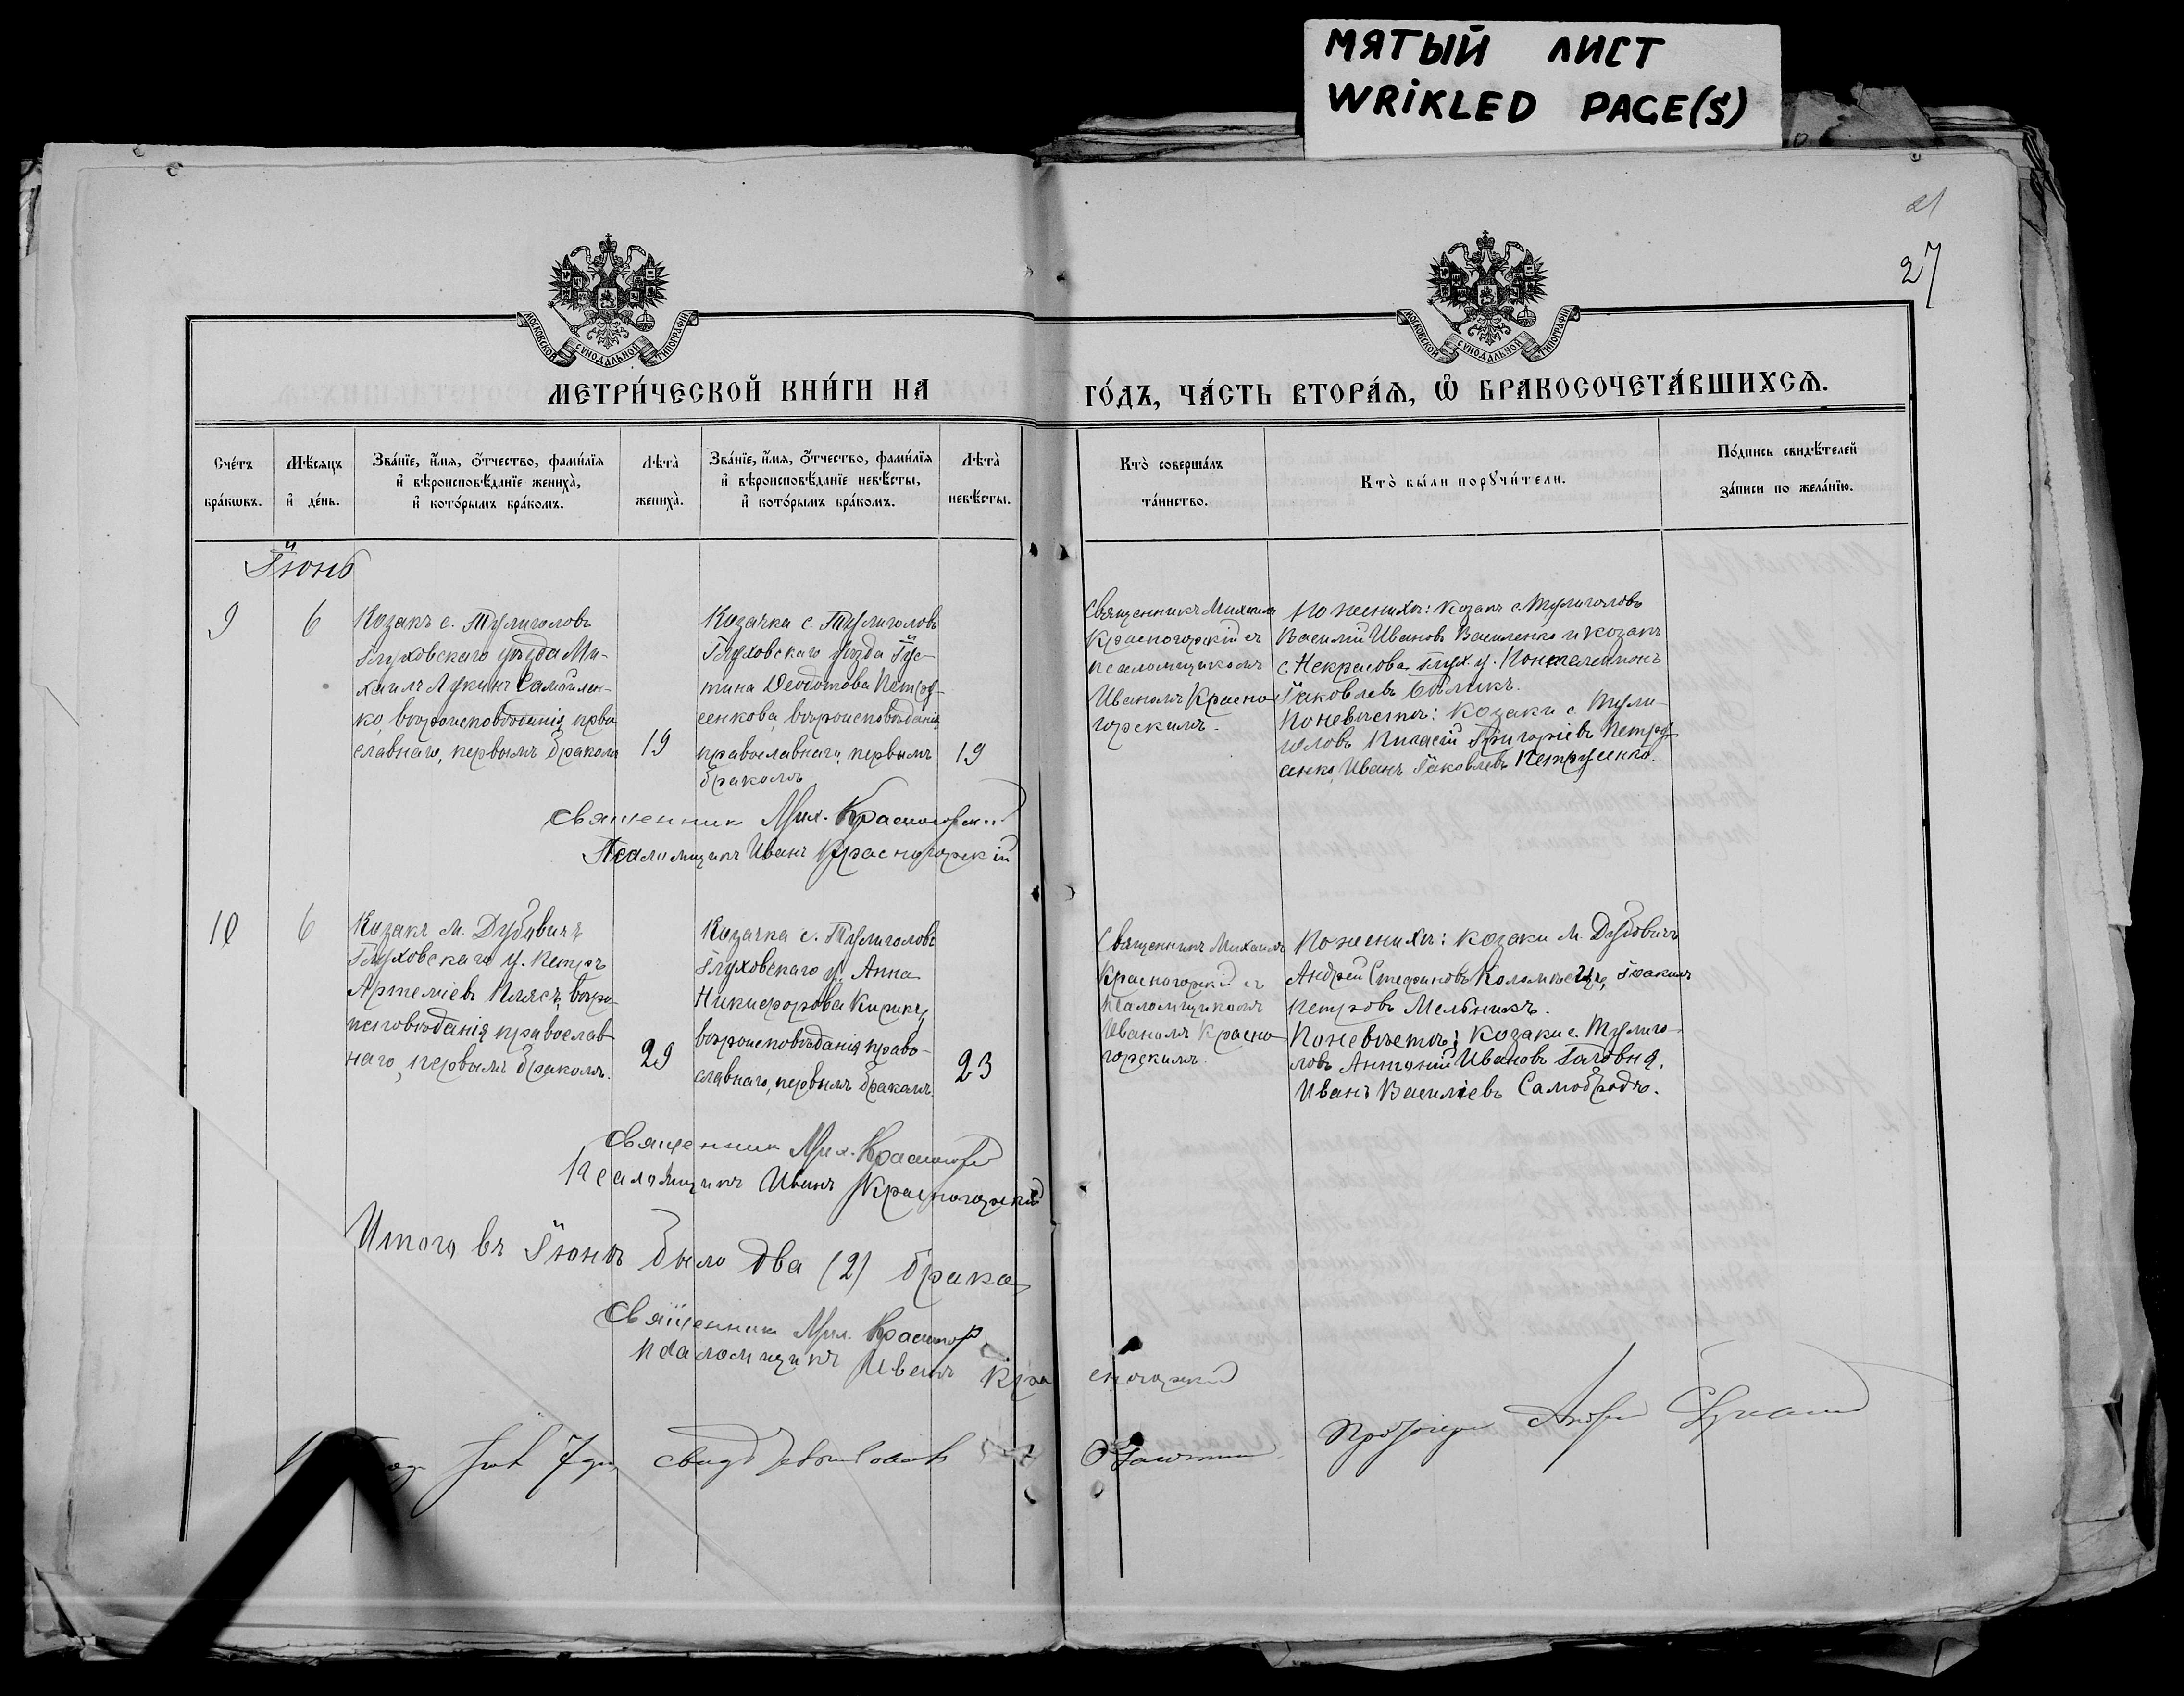 МЯТЫЙ ЛИСТ
WRiKLED PAGE(S)
21
27
МОСКОВСКОЙ СУНОДАЛЬНОЙ ТИПОГРАФІИ
МОСКОВСКОЙ СУНОДАЛЬНОЙ ТИПОГРАФІИ
МЕТРИ́ЧЕСКОЙ КНИ́ГИ НА
ГО́ДЪ, ЧА́СТЬ ВТОРА́Ѧ, Ѽ БРАКОСОЧЕТА́ВШИХСѦ.
Сче́тъ
бра́кѡвъ.
Мѣ́сѧцъ
и҆ де́нь.
Зва́нїе, и҆́мѧ, ѻ҆́тчество, фами́лїѧ
и҆ вѣроисповѣ́данїе жениха̀,
и҆ кото́рымъ бра́комъ.
Лѣта̀
жениха̀.
Зва́нїе, и҆́мѧ, ѻ҆́тчество, фами́лїѧ
и҆ вѣроисповѣ́данїе невѣ́сты,
и҆ кото́рымъ бра́комъ.
Лѣта̀
невѣ́сты.
Кто̀ соверша́лъ
та́инство.
Кто̀ бы́ли порꙋчи́тели.
По́дпись свидѣ́телей
за́писи по жела́нїю.
Іюнь
9
6
Козакъ с. Тулиголовъ
Глуховскаго уѣзда Ми-
хаилъ Лукинъ Самойлен-
ко, вѣроисповѣданія право
славнаго, первымъ бракомъ
19
Козачка с. Тулиголовъ
Глуховскаго уѣзда Іус-
тина Деодотова Петру-
сенкова, вѣроисповѣданія
православнаго, первымъ
бракомъ
19
Священникъ Михаилъ
Красногорскій съ
псаломщикомъ
Иваномъ Красно-
горскимъ.
По женихѣ: козакъ с Тулиголовъ
Василій Ивановъ Василенко и козакъ
с. Некрасова Глух. у. Понтелеимонъ
Іаковлевъ Бѣликъ.
По невѣстѣ: козаки с. Тули-
головъ Григоріевъ Петрус
енко, Иванъ Іаковлевъ Петрусенко.
Священник Мих. Красногорскій
Псаломщикъ Иванъ Красногорскій
10
6
Козакъ м. Дубовичъ
Глуховскаго у. Петръ
Артеміевъ Плясъ, вѣро-
исповѣданія православ
наго, первымъ бракомъ.
29
Козачка с. Тулиголовъ
Глуховскаго у. Анна
Никифорова
вѣроисповѣданія право-
славнаго, первымъ бракомъ.
23
Священникъ Михаилъ
Красногорскій съ
псаломщикомъ
Иваномъ Красно-
горскимъ.
По женихѣ: козаки м. Дубовичъ
Андрей Стефановъ Коломіецъ, Іоакимъ
Петровъ Мельникъ.
По невѣстѣ: козаки с. Тулиго-
ловъ Антоній Ивановъ Головня,
Иванъ Василіевъ Самобродъ.
Священник Мих. Красногорскій
Псаломщикъ Иванъ Красногорскій
Итого въ Іюнѣ было два (2) брака
Священник Мих. Красногор
Псаломщикъ Иванъ Кра
сногорскій
свидѣтельствовалъ
Андрей